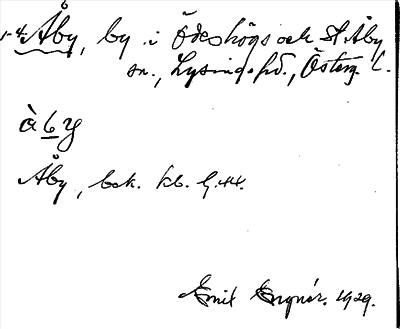 1-4 Åby, by i Ödeshögs och St. Åby
sn., Lysings hd., Österg. l.
àby
Åby, bok. kb.
Emil Engnér. 1929.